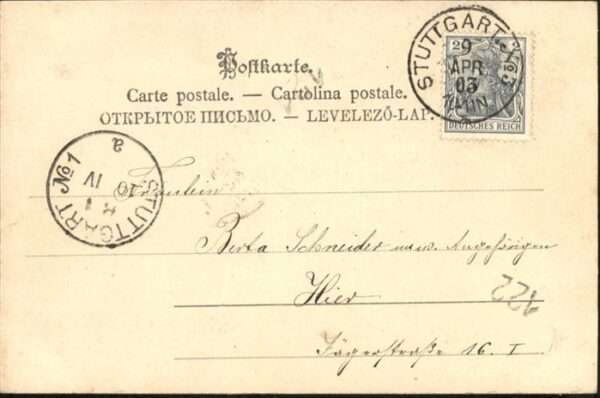 Postkarte.
Carte postale. — Cartolina postale.
ОТКРЫТОЕ ПИСЬМО. — LEVELEZŐ-LAP.
STUTTGART No 3
9
APR.
03
2 2
DEUTSCHES REICH
STUTTGART No 1
a
10
IV
Fräulein
Berta Schneider u. w. Angehörigen
Hier
Jägerstraße 16. I
122